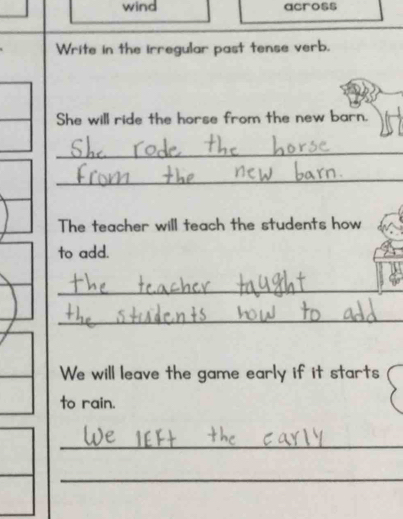 wind
across
Write in the irregular past tense verb.
She will ride the horse from the new barn.
She rode the horse
from the new barn.
The teacher will teach the students how
to add.
the teacher taught
the students how to add
We will leave the game early if it starts
to rain.
We left the early